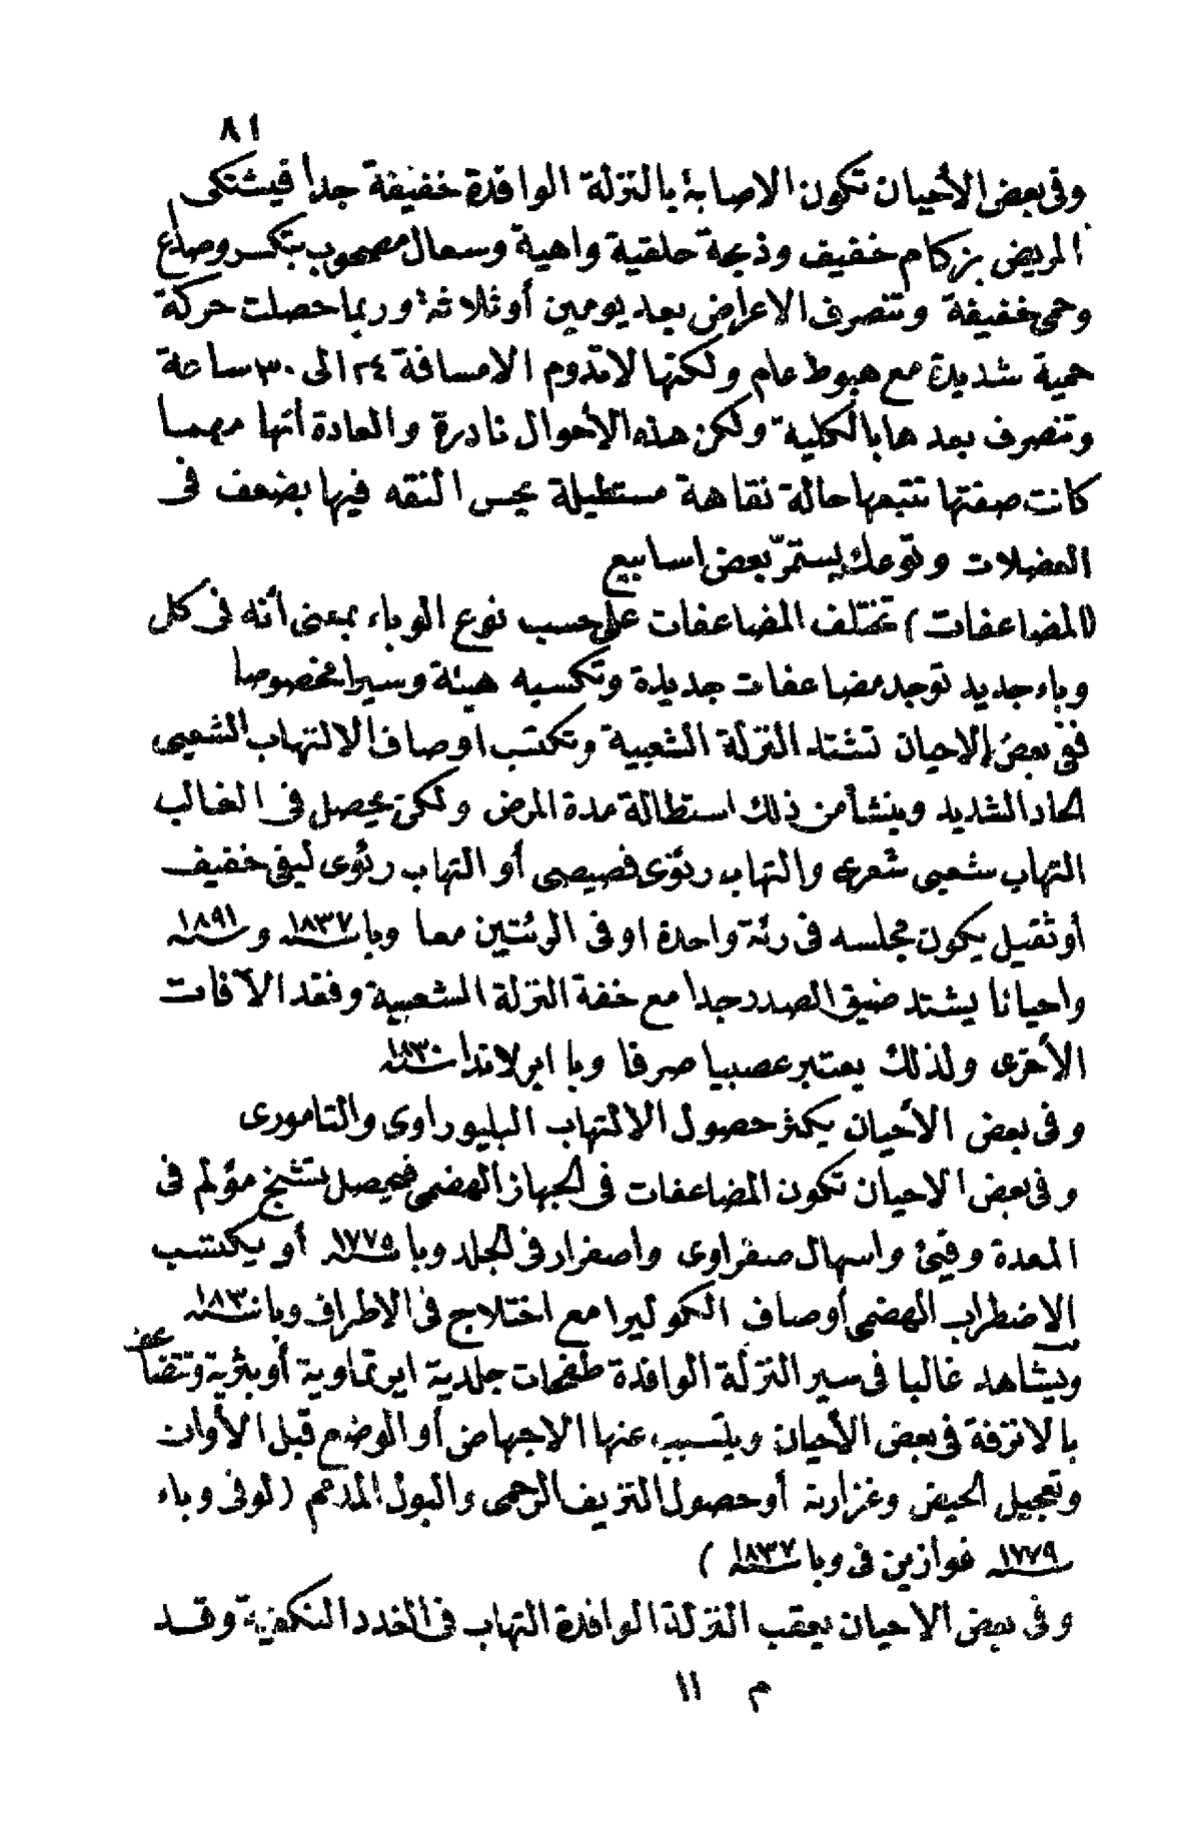 ٨١
وفى بعض الأحيان تكون الاصابة بالنزلة الوافدة خفيفة جدا فيشتكى
المريض بزكام خفيف وذبحة حلقية واهية وسعال مصحوب بتكسر وصداع
وحمى خفيفة وتنصرف الاعراض بعد يومين أو ثلاثة وربما حصلت حركة
حمية شديدة مع هبوط عام ولكنها لا تدوم الا مسافة ٢٤ الى ٣٠ ساعة
وتنصرف بعدها بالكلية ولكن هذه الأحوال نادرة والعادة أنها مهما
كانت صفتها تتبعها حالة نقاهة مستطيلة يحس النقه فيها بضعف فى
العضلات وتوعك يستمرّ بعض اسابيع
(المضاعفات) تختلف المضاعفات على حسب نوع الوباء بمعنى أنه فى كل
وباء جديد توجد مضاعفات جديدة وتكسبه هيئة وسيرا مخصوصا
ففى بعض الاحيان تشتد النزلة الشعبية وتكتسب اوصاف الالتهاب الشعبى
الحاد الشديد وينشأ من ذلك استطالة مدة المرض ولكن يحصل فى الغالب
التهاب شعبى شعرى والتهاب رئوى فصيصى أو التهاب رئوى ليفى خفيف
أو ثقيل يكون مجلسه فى رئة واحدة او فى الرئتين معا وبا سنة ١٨٣٧ وسنة ١٨٩١
واحيانا يشتد ضيق الصدر جدا مع خفة النزلة الشعبية وفقد الآفات
الأخرى ولذلك يعتبر عصبيا صرفا وبا ايرلاندا سنة ١٨٣٠
وفى بعض الأحيان يكثر حصول الالتهاب البليوراوى والتامورى
وفى بعض الاحيان تكون المضاعفات فى الجهاز الهضمى فيحصل تشنج مؤلم فى
المعدة وقيئ واسهال صفراوى واصفرار فى الجلد وبا سنة ١٧٧٥ أو يكتسب
الاضطراب الهضمى أوصاف الكموليرا مع اختلاج فى الاطراف وبا سنة ١٨٣٠
ويشاهد غالبا فى سير النزلة الوافدة طفحات جلدية ايرتماوية أو بثرية وتتضاعف
بالانزفة فى بعض الأحيان ويتسبب عنها الاجهاض أو الوضع قبل الأوان
وتعجيل الحيض وغزارته أو حصول النزيف الرحمى والبول المدمم (لوفى وباء
سنة ١٧٧٩ غوازين فى وبا سنة ١٨٣٧)
وفى بعض الاحيان يعقب النزلة الوافدة التهاب فى الغدد النكفية وقد
م ١١